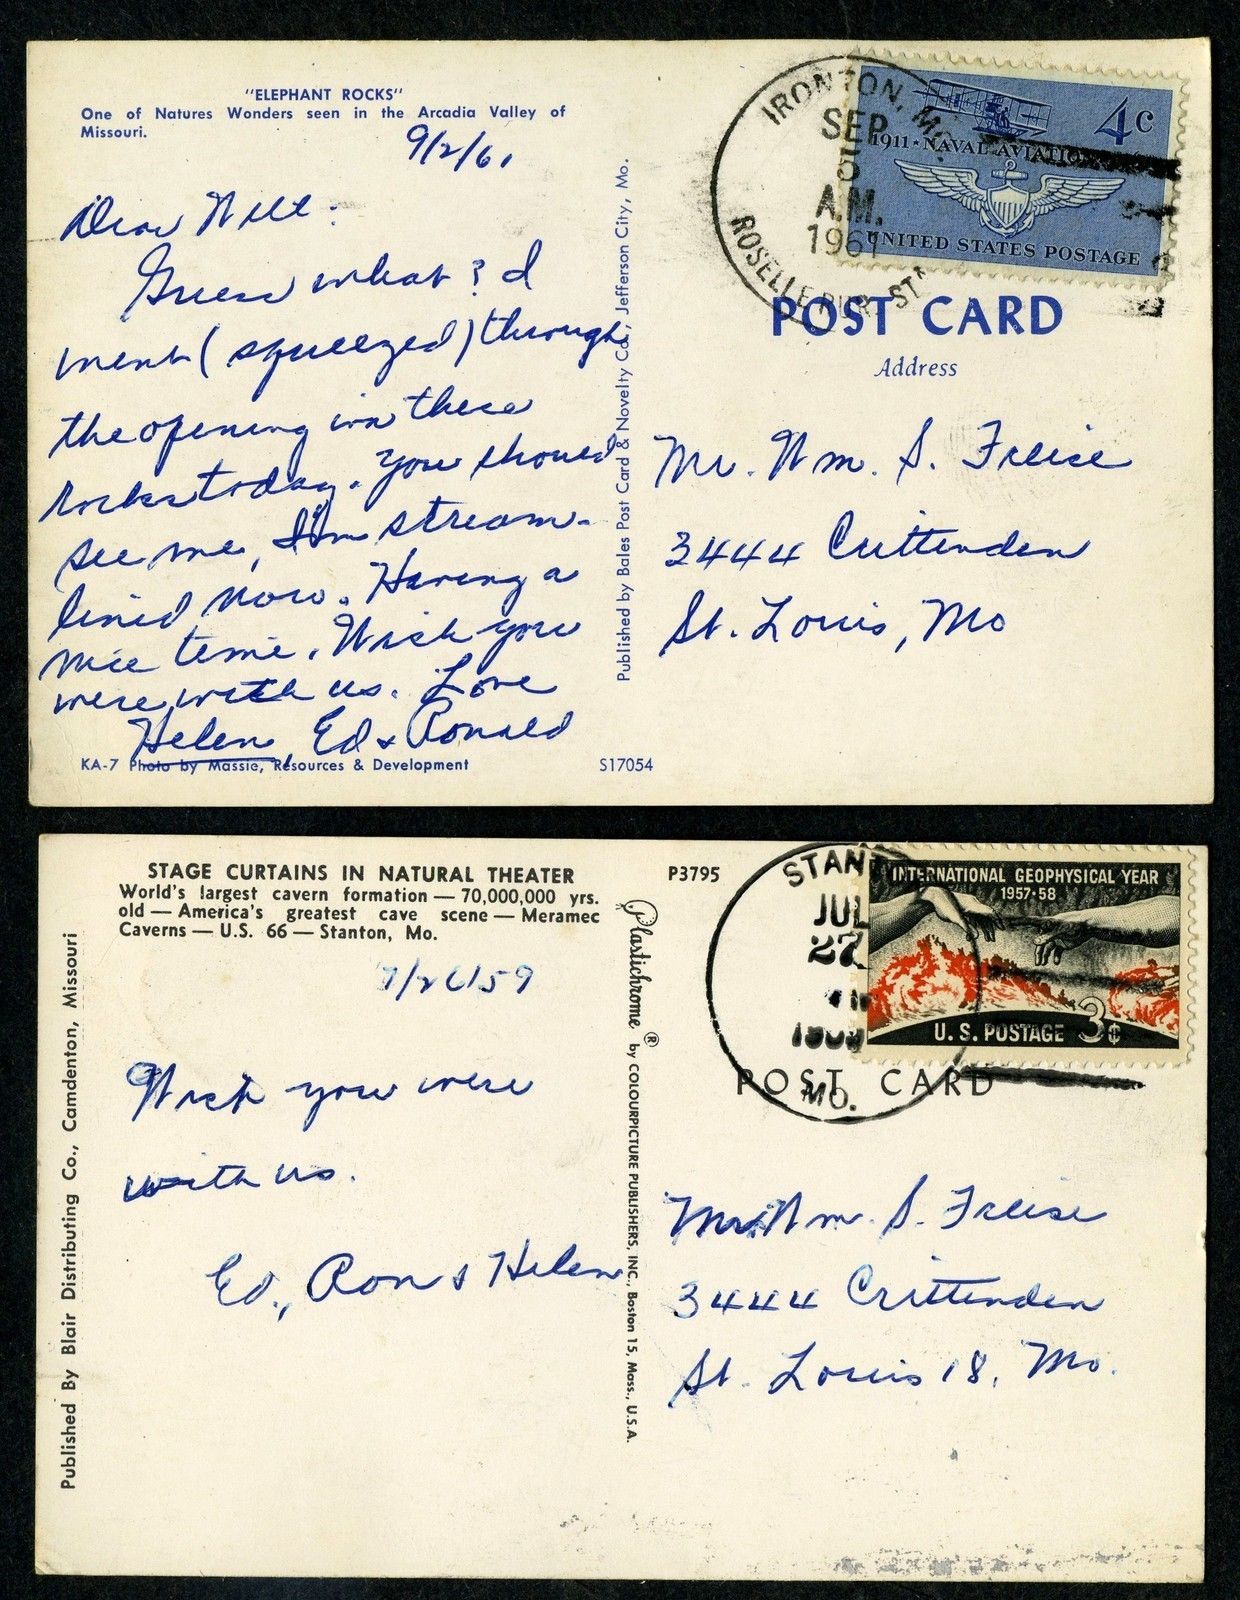 "ELEPHANT ROCKS"
One of Natures Wonders seen in the Arcadia Valley of
Missouri.
9/2/61
Dear Will:
Guess what? I
went (squeezed) through
the opening in these
rocks today. You should
see me, I'm stream-
lined now. Having a
nice time. Wish you
were with us. Love
Helen, Ed & Ronald
KA-7 Photo by Massie, Resources & Development
S17054
Published by Bales Post Card & Novelty Co., Jefferson City, Mo.
IRONTON, MO.
SEP
5
A.M.
1961
ROSELLE RUR. STA
4c
1911 · NAVAL AVIATION
UNITED STATES POSTAGE
POST CARD
Address
Mr. Wm. S. Freise
3444 Crittenden
St. Louis, Mo
STAGE CURTAINS IN NATURAL THEATER
World's largest cavern formation — 70,000,000 yrs.
old — America's greatest cave scene — Meramec
Caverns — U.S. 66 — Stanton, Mo.
7/26/59
Wish you were
with us.
Ed, Ron & Helen
Published By Blair Distributing Co., Camdenton, Missouri
P3795
Plastichrome ® by COLOURPICTURE PUBLISHERS, INC., Boston 15, Mass., U.S.A.
STANT
JUL
27
MO.
INTERNATIONAL GEOPHYSICAL YEAR
1957-58
U. S. POSTAGE 3¢
POST CARD
Mr. Wm. S. Freise
3444 Crittenden
St. Louis 18, Mo.